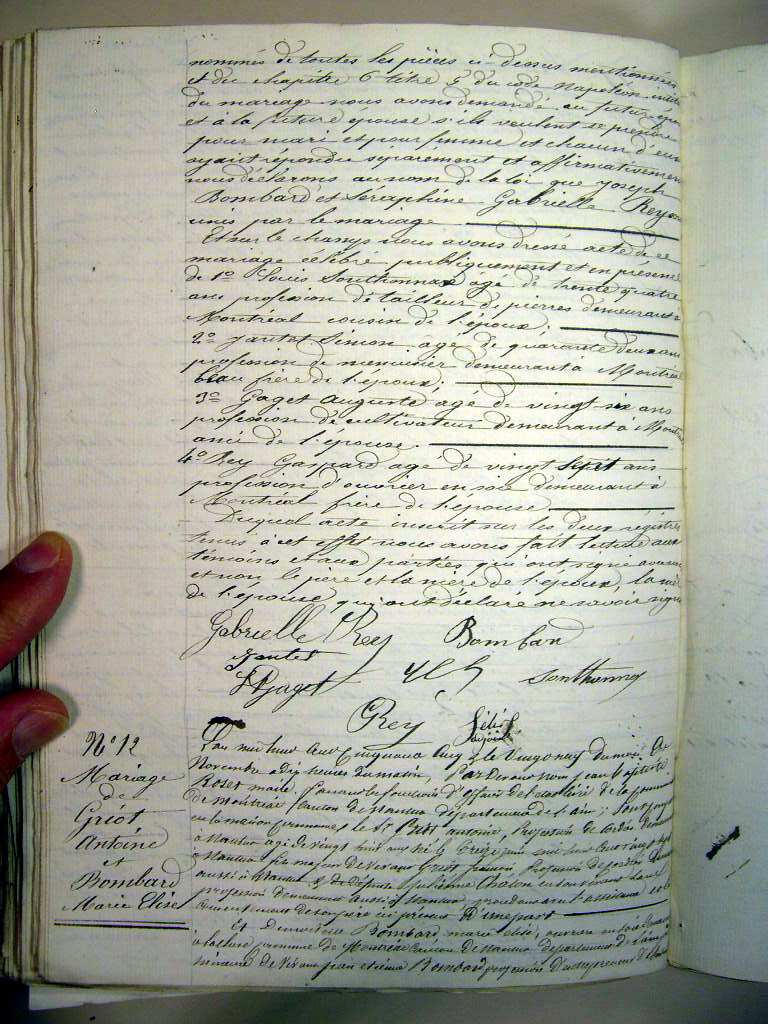 nommés de toutes les pièces ci-dessus mentionnées
et du chapitre 6 titre 5 du code Napoléon
du mariage nous avons demandé au futur époux
et à la future épouse s'ils veulent se prendre
pour mari et pour femme et chacun d'eux
ayant répondu séparement et affirmativement
nous déclarons au nom de la loi que Joseph
Bombard et Séraphine Gabrielle Rey sont
unis par le mariage
Et sur le champs nous avons dressé acte de ce
mariage célébré publiquement et en présence
de 1º Louis Southonnax âgé de trente quatre
ans profession de tailleur de pierres demeurant à
Montréal cousin de l'époux.
2º Jantet Simon agé de quarante deux ans
profession de menuisier demeurant à Montréal
beau frère de l'époux.
3º Gaget Auguste agé de vingt six ans
profession de cultivateur demeurant à Montréal
ami de l'épouse.
4º Rey Gaspard agé de vingt sept ans
profession d'ouvrier en soie demeurant à
Montréal frère de l'épouse
Duquel acte inscrit sur les deux régistres
tenus à cet effet nous avons fait lecture aux
témoins et aux parties qui ont signé avec nous
et non le père et la mère de l'époux, la mère
de l'épouse qui ont déclaré ne savoir signer
Gabrielle Rey Bombard
Jantet
Gaget Southonnax
Rey
Nº 12
Mariage
de
Griot
Antoine
et
Bombard
Marie Elise
L'an mil huit cent cinquante cinq le vingt neuf du mois de
Novembre à dix heures du matin, Par devant nous Jean Baptiste
Roset maire, officier de l'état civil de la commune
de Montréal Canton de Nantua département de l'ain;
en la maison commune le Sr Griot antoine, Profession de
à Nantua agé de vingt huit ans né le treize juin mil huit cent vingt sept
à Nantua fils majeur de vivant Griot Profession de
aussi à Nantua & de défunte Julienne Chalon en son vivant sans
profession demeurant aussi à Nantua, procédant
consentement de son père ici présent D'une part
Et Demoiselle Bombard marie elise, ouvrière en soie
commune de Montréal Canton de Nantua département de l'ain
de vivant Jean etienne Bombard profession d'entrepreneur